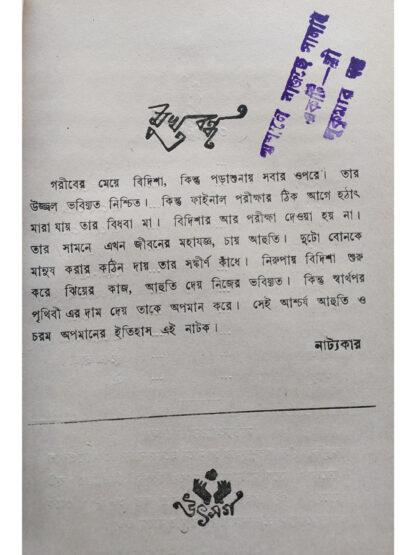 মুখ বন্ধ
গরীবের মেয়ে বিদিশা, কিন্তু পড়াশুনায় সবার ওপরে। তার
উজ্জ্বল ভবিষ্যত নিশ্চিত। কিন্তু ফাইনাল পরীক্ষার ঠিক আগে হঠাৎ
মারা যায় তার বিধবা মা। বিদিশার আর পরীক্ষা দেওয়া হয় না।
তার সামনে এখন জীবনের মহাযজ্ঞ, চায় আহুতি। দুটো বোনকে
মানুষ করার কঠিন দায় তার সঙ্কীর্ণ কাঁধে। নিরুপায় বিদিশা শুরু
করে ঝিয়ের কাজ, আহুতি দেয় নিজের ভবিষ্যত। কিন্তু স্বার্থপর
পৃথিবী এর দাম দেয় তাকে অপমান করে। সেই আশ্চর্য আহুতি ও
চরম অপমানের ইতিহাস এই নাটক।
নাট্যকার
উৎসর্গ